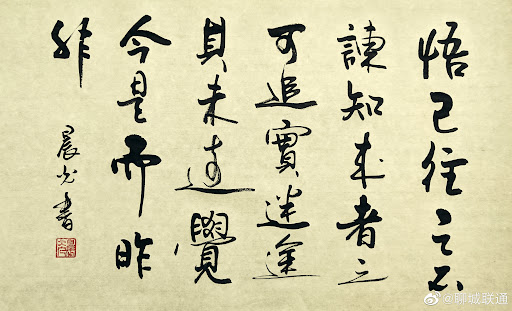 悟已往之不
諫知来者之
可追實迷途
其未遠覺
今是而昨
非
晨光書
@聊城联通